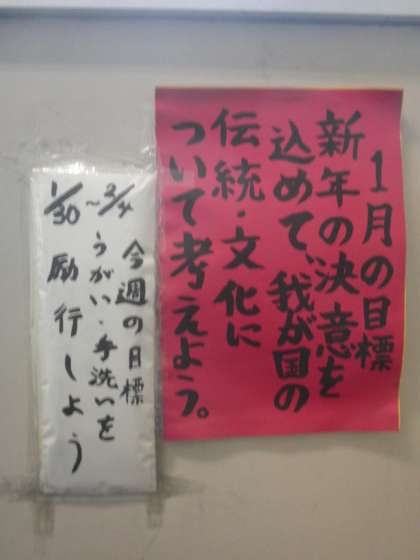 1月の目標
新年の決意を
込めて、我が国の
伝統・文化に
ついて考えよう。
今週の目標
1/30～2/4
うがい・手洗いを
励行しよう